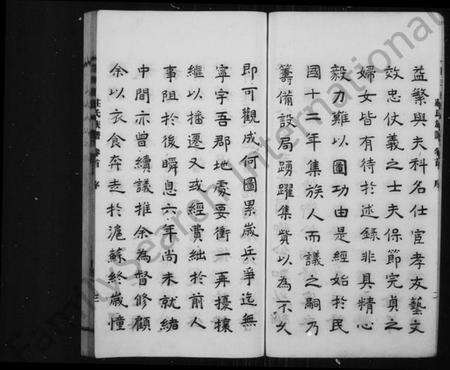 益繁與夫科名仕宦孝友藝文
效忠仗義之士夫保節完貞之
婦女皆有待於述錄非具精心
毅力難以圖功由是經始於民
國十二年集族人而議之嗣乃
籌備設局踴躍集貲以為不久
即可觀成何圖累歲兵爭迄無
寧宇吾郡地處要衝一再擾攘
繼以播遷又或經費絀於前人
事阻於後瞬息六年尚未就緒
中間亦曾續議推余為督修顧
余以衣食奔走於滬蘇終歲憧
FamilySearch International